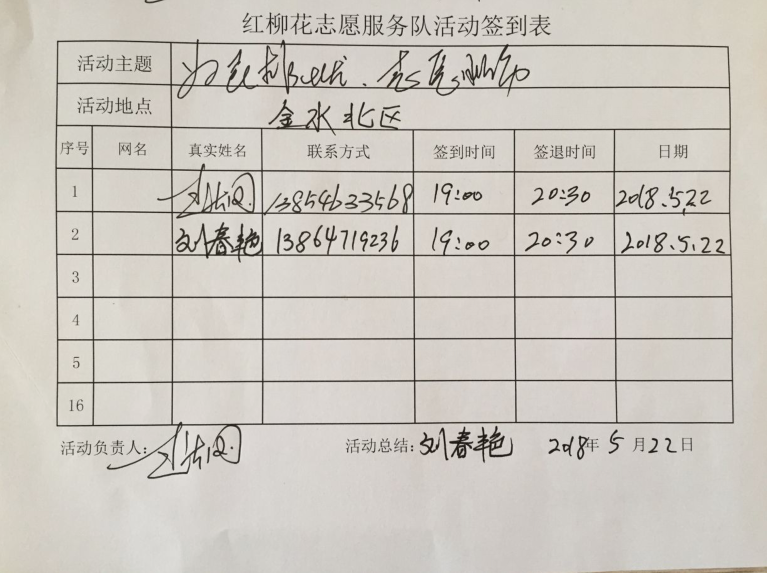 红柳花志愿服务队活动签到表
活动主题
活动地点 金水北区
序号 网名 真实姓名 联系方式 签到时间 签退时间 日期
1 13854633568 19:00 20:30 2018.5.22
2 刘春艳 13864719236 19:00 20:30 2018.5.22
3
4
5
16
活动负责人: 活动总结: 刘春艳 2018年5月22日